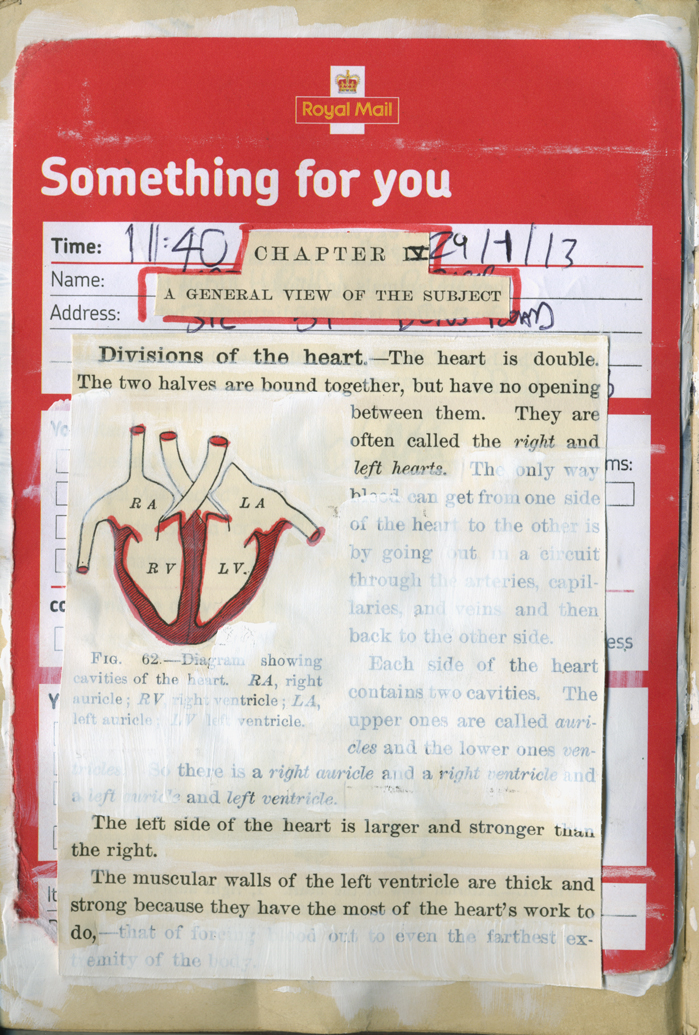 Royal Mail
Something for you
Time: 11:40 CHAPTER IV 29/1/13
Name:
A GENERAL VIEW OF THE SUBJECT
Address:
Divisions of the heart.—The heart is double.
The two halves are bound together, but have no opening
between them. They are
often called the right and
left hearts. The only way
blood can get from one side
of the heart to the other is
by going out in a circuit
through the arteries, capil-
laries, and veins and then
back to the other side.
Each side of the heart
contains two cavities. The
upper ones are called auri-
cles and the lower ones ven-
tricles. So there is a right auricle and a right ventricle and
a left auricle and left ventricle.
RA
LA
RV
LV.
FIG. 62.—Diagram showing
cavities of the heart. RA, right
auricle; RV, right ventricle; LA,
left auricle; LV left ventricle.
The left side of the heart is larger and stronger than
the right.
The muscular walls of the left ventricle are thick and
strong because they have the most of the heart's work to
do,—that of forcing blood out to even the farthest ex-
tremity of the body.